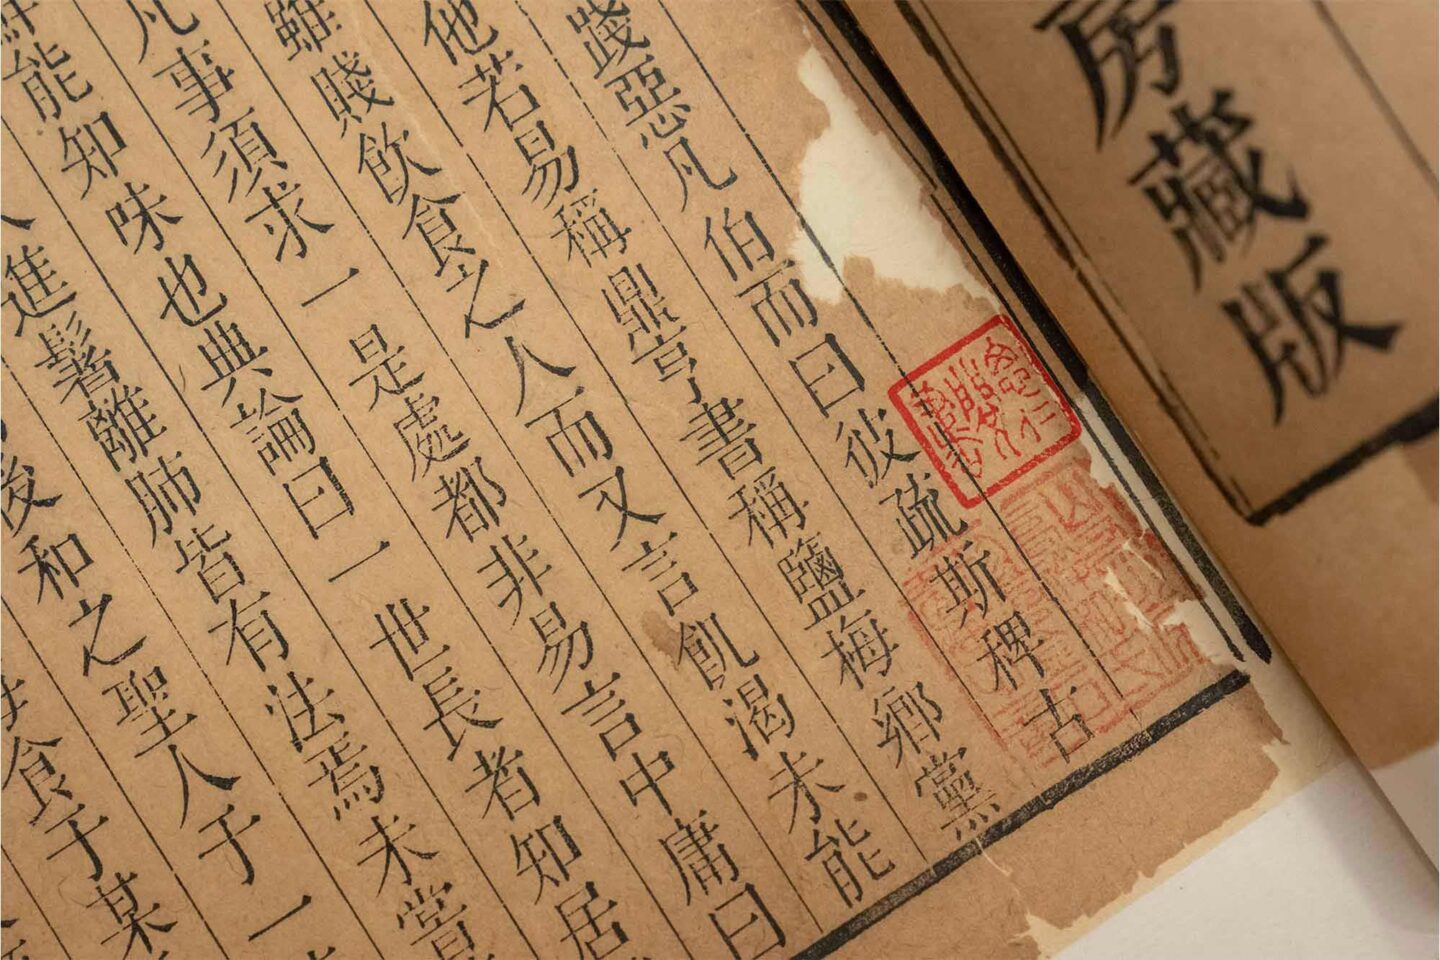 房藏版
踐惡凡伯而曰彼疏斯稗古
他若易稱鼎亨書稱鹽梅鄉黨
雖賤飲食之人而又言飢渴未能
凡事須求一是處都非易言中庸曰
能知味也典論曰一世長者知居
進鬐離肺皆有法焉未嘗
後和之聖人于一
食于某